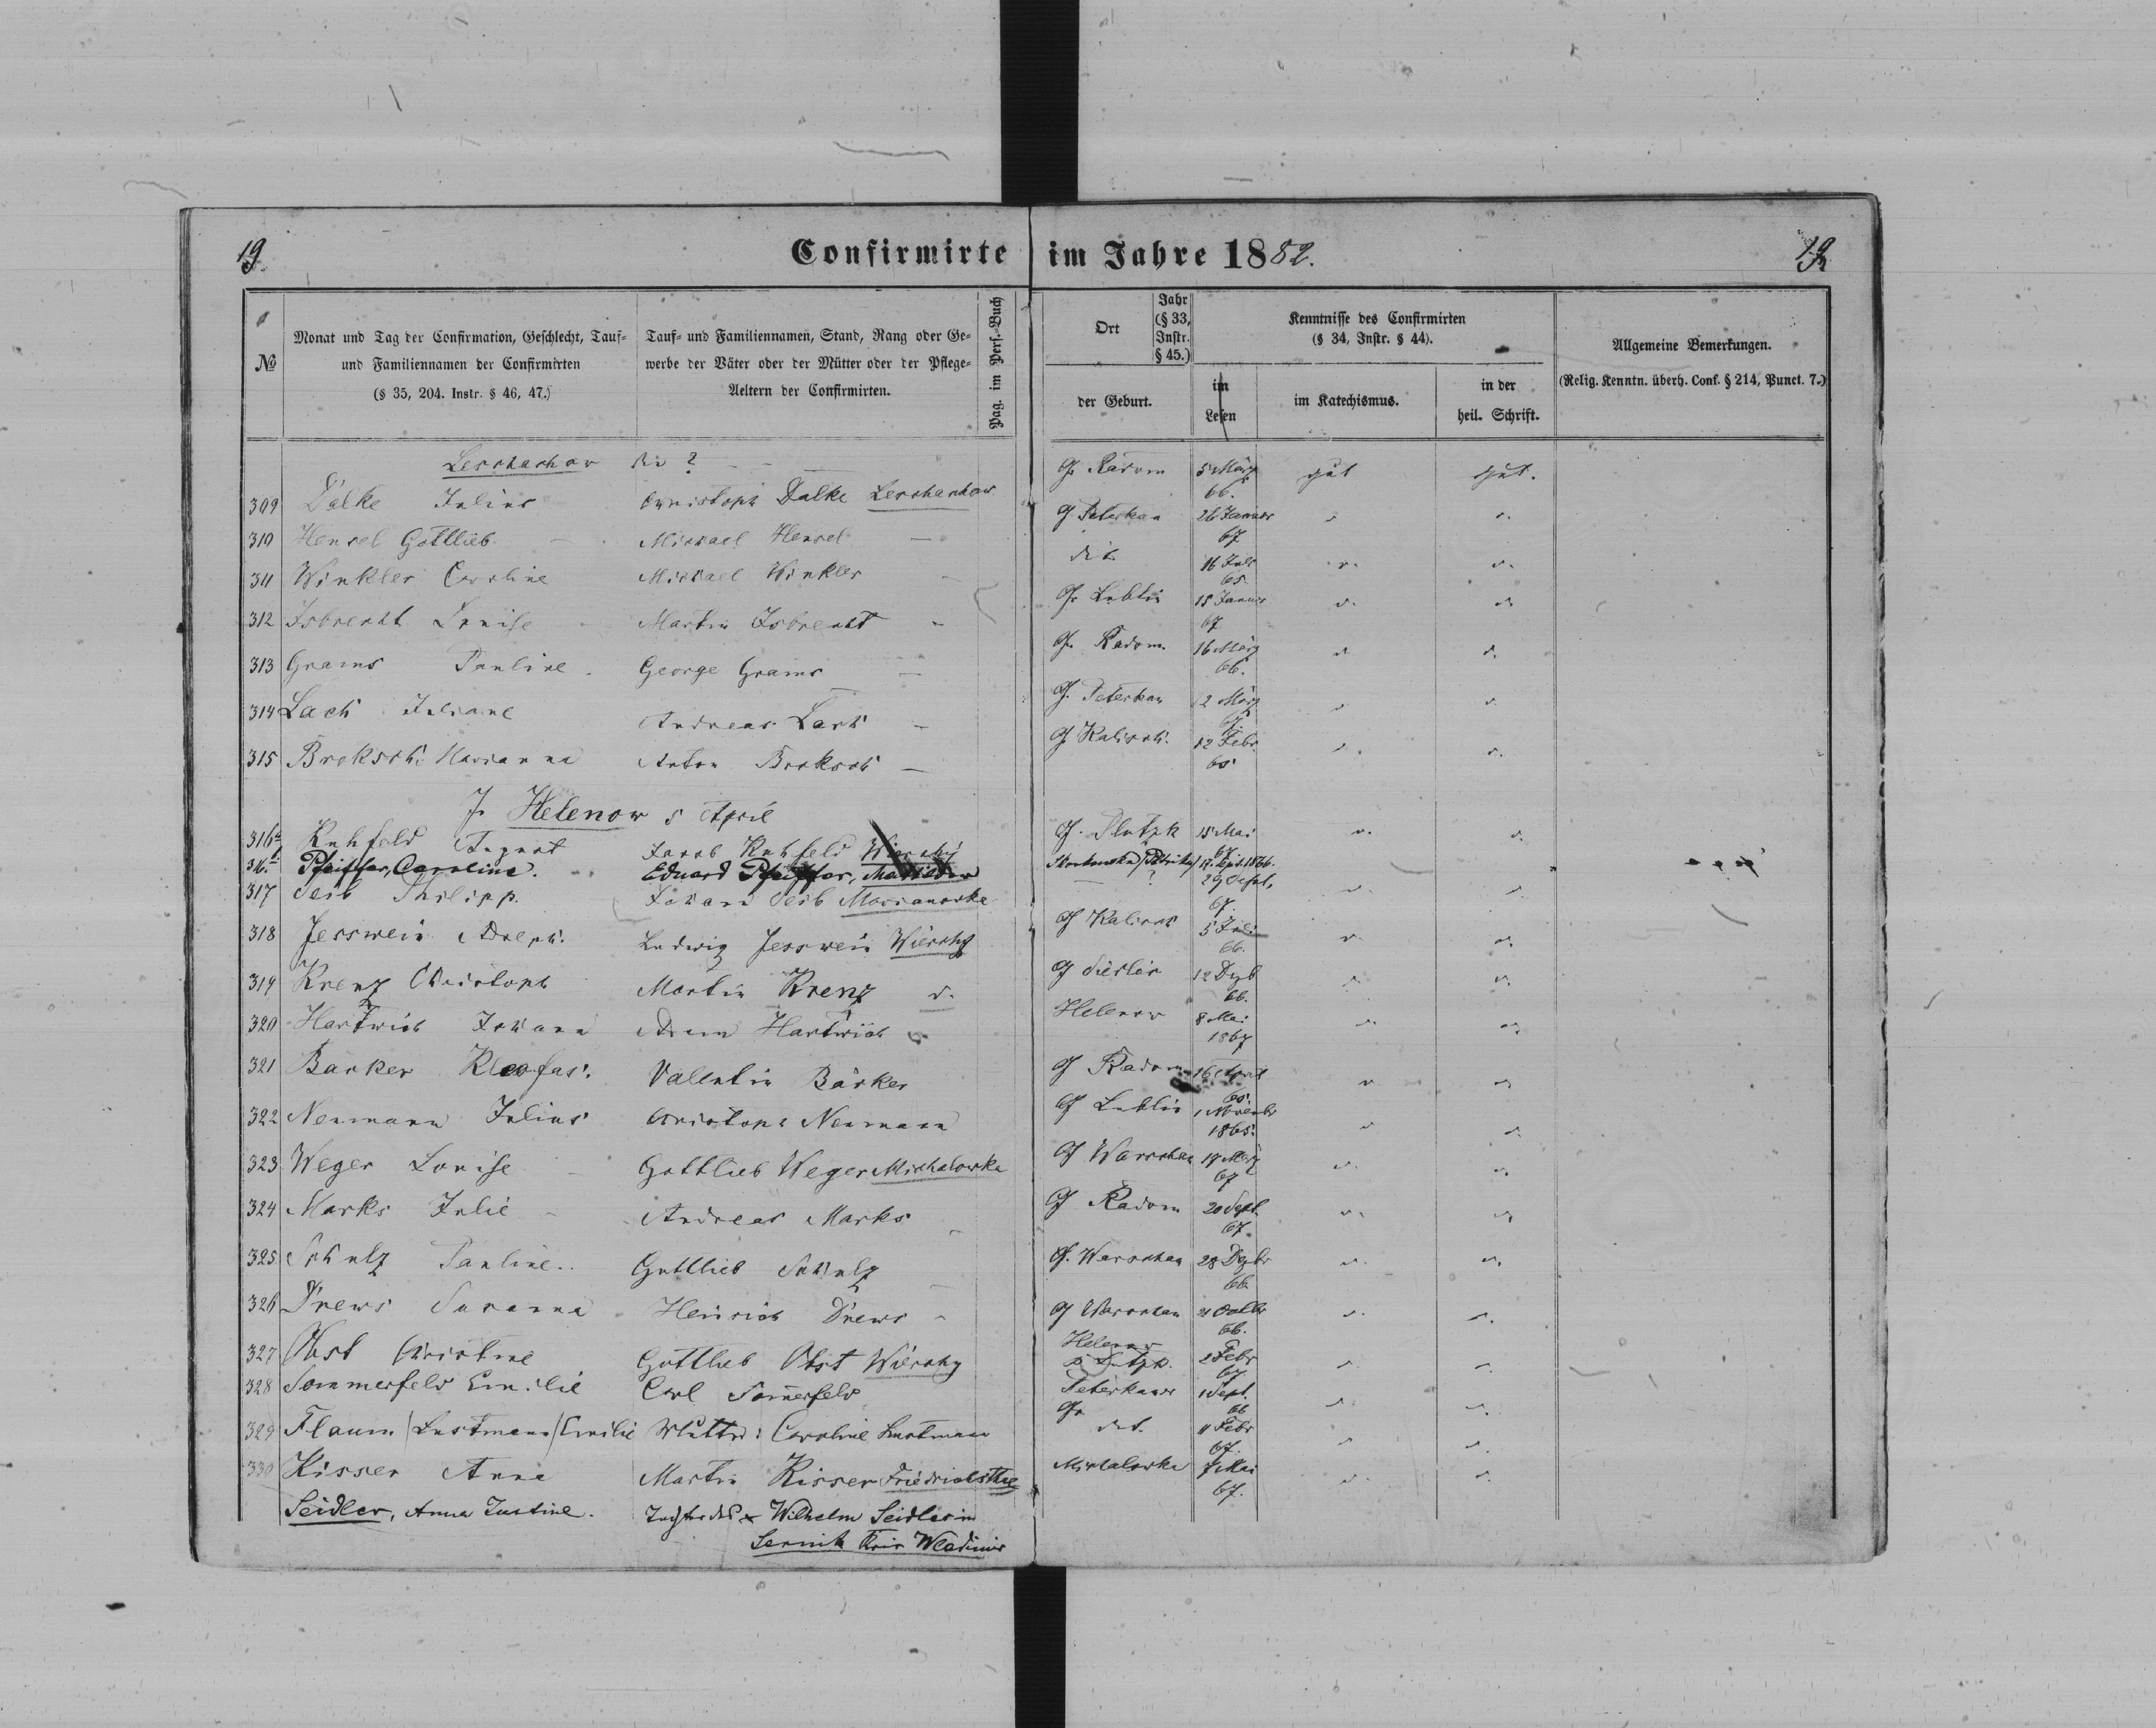 19.
Confirmirte im Jahre 1882.
19
№
Monat und Tag der Confirmation, Geschlecht, Tauf-
und Familiennamen der Confirmirten
(§ 35, 204. Instr. § 46, 47.)
Tauf- und Familiennamen, Stand, Rang oder Ge-
werbe der Väter oder der Mütter oder der Pflege-
Aeltern der Confirmirten.
Pag. im Pers.-Buch
Ort
Jahr
(§ 33,
Instr.
§ 45.)
der Geburt.
Kenntnisse des Confirmirten
(§ 34, Instr. § 44).
im
Lesen
im Katechismus.
in der
heil. Schrift.
Allgemeine Bemerkungen.
(Relig. Kenntn. überh. Conf. § 214, Punct. 7.)
Leschachow
309 Dalke Julius Christoph Dalke Leschachow G. Radom 5 März 66. gut gut.
310 Hensel Gottlieb Michael Hensel G Peterkau 26 Januar 67
311 Winkler Caroline Michael Winkler dit. 16 65.
312 Isbrecht Louise Martin Isbrecht G. Lublin 15 Januar 67
313 Grams Pauline George Grams G. Radom 16 März 66.
314 Lach Juliane Andreas Lach G. Peterkau 12 März
315 Broksch Marianna Anton Broksch G Kalisch 12 Febr. 65
J. Helenow 5 April
316a Kuhfeld August Jacob Kuhfeld G. Plotzk 15 Mai 67
316b Pfeiffer, Caroline. Eduard Pfeiffer, 17. Sept. 1866.
317 Seib Philipp. Johann Seib Marianowka 29 Sept. 67.
318 Jesswein Adolph. Ludwig Jesswein Wierchy G Kalisch 5 66.
319 Krenz Christoph Martin Krenz d. G 12 Dzb 66.
320 Hartwich Johann Adam Hartwich Helenow 8 Mai 1867
321 Bärker Kleofas. Vallentin Bärker G Radom 16 April 65.
322 Neumann Julius Christoph Neumann G Lublin 1 Novembr 1865.
323 Weger Louise Gottlieb Weger Michalowka G Warschau 17 März 67
324 Marks Julie Andreas Marks G Radom 20 Sept. 67.
325 Schulz Pauline Gottlieb Schulz G. Warschau 28 Dezbr 66.
326 Drews Susanna Heinrich Drews G Warschau 21 66.
327 Obst Christine Gottlieb Obst Wierchy Helenow 2 Febr 67
328 Sommerfeld Emilie Carl Somerfeld Peterkauer G. 1 Sept. 66
329 Flaum /Lustmann/ Emilie Mutter: Caroline Lustmann dit. 11 Febr 67.
330 Risser Anna Martin Risser Friedrichsthal Michalowka 7 Mai 67.
Seidler, Anna Justine. Tochter des Wilhelm Seidler in
Sernik Wladimir